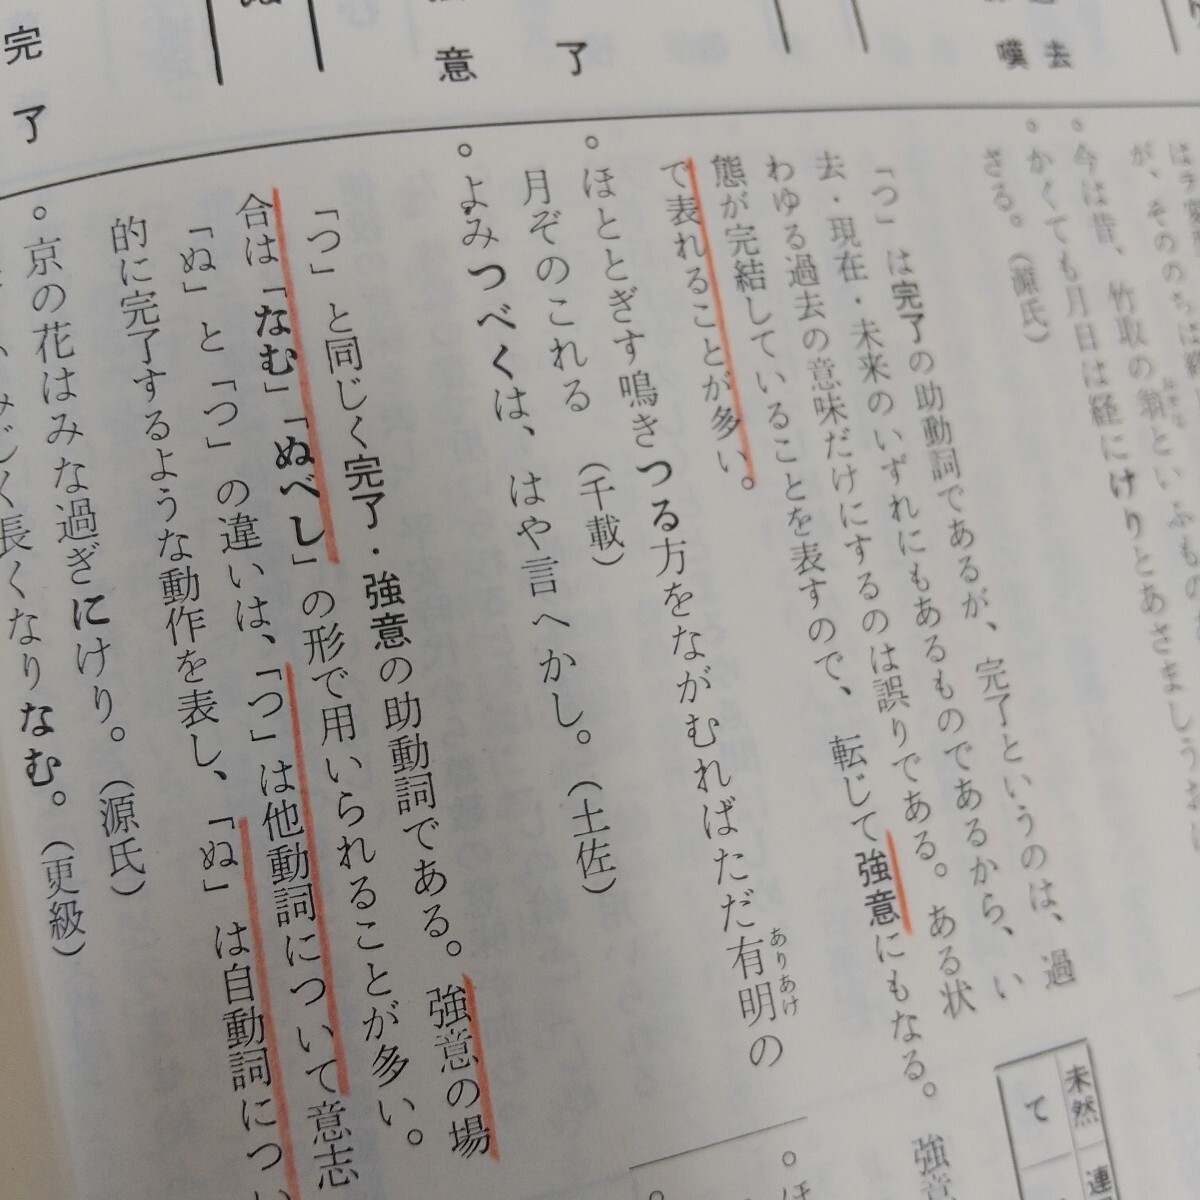 去
嘆
了
意
完
了
が、そののちは
今は昔、竹取の翁といふもの
おきな
かくても月日は経にけりとあさましうお
さる。（源氏）
「つ」は完了の助動詞であるが、完了というのは、過
去・現在・未来のいずれにもあるものであるから、い
わゆる過去の意味だけにするのは誤りである。ある状
態が完結していることを表すので、転じて強意にもなる。強意
で表れることが多い。
ほととぎす鳴きつる方をながむればただ有明の
ありあけ
月ぞのこれる（千載）
よみつべくは、はや言へかし。（土佐）
「つ」と同じく完了・強意の助動詞である。強意の場
合は「なむ」「ぬべし」の形で用いられることが多い。
「ぬ」と「つ」の違いは、「つ」は他動詞について意志
的に完了するような動作を表し、「ぬ」は自動詞につい
京の花はみな過ぎにけり。（源氏）
みじく長くなりなむ。（更級）
未然
て
連
ほ